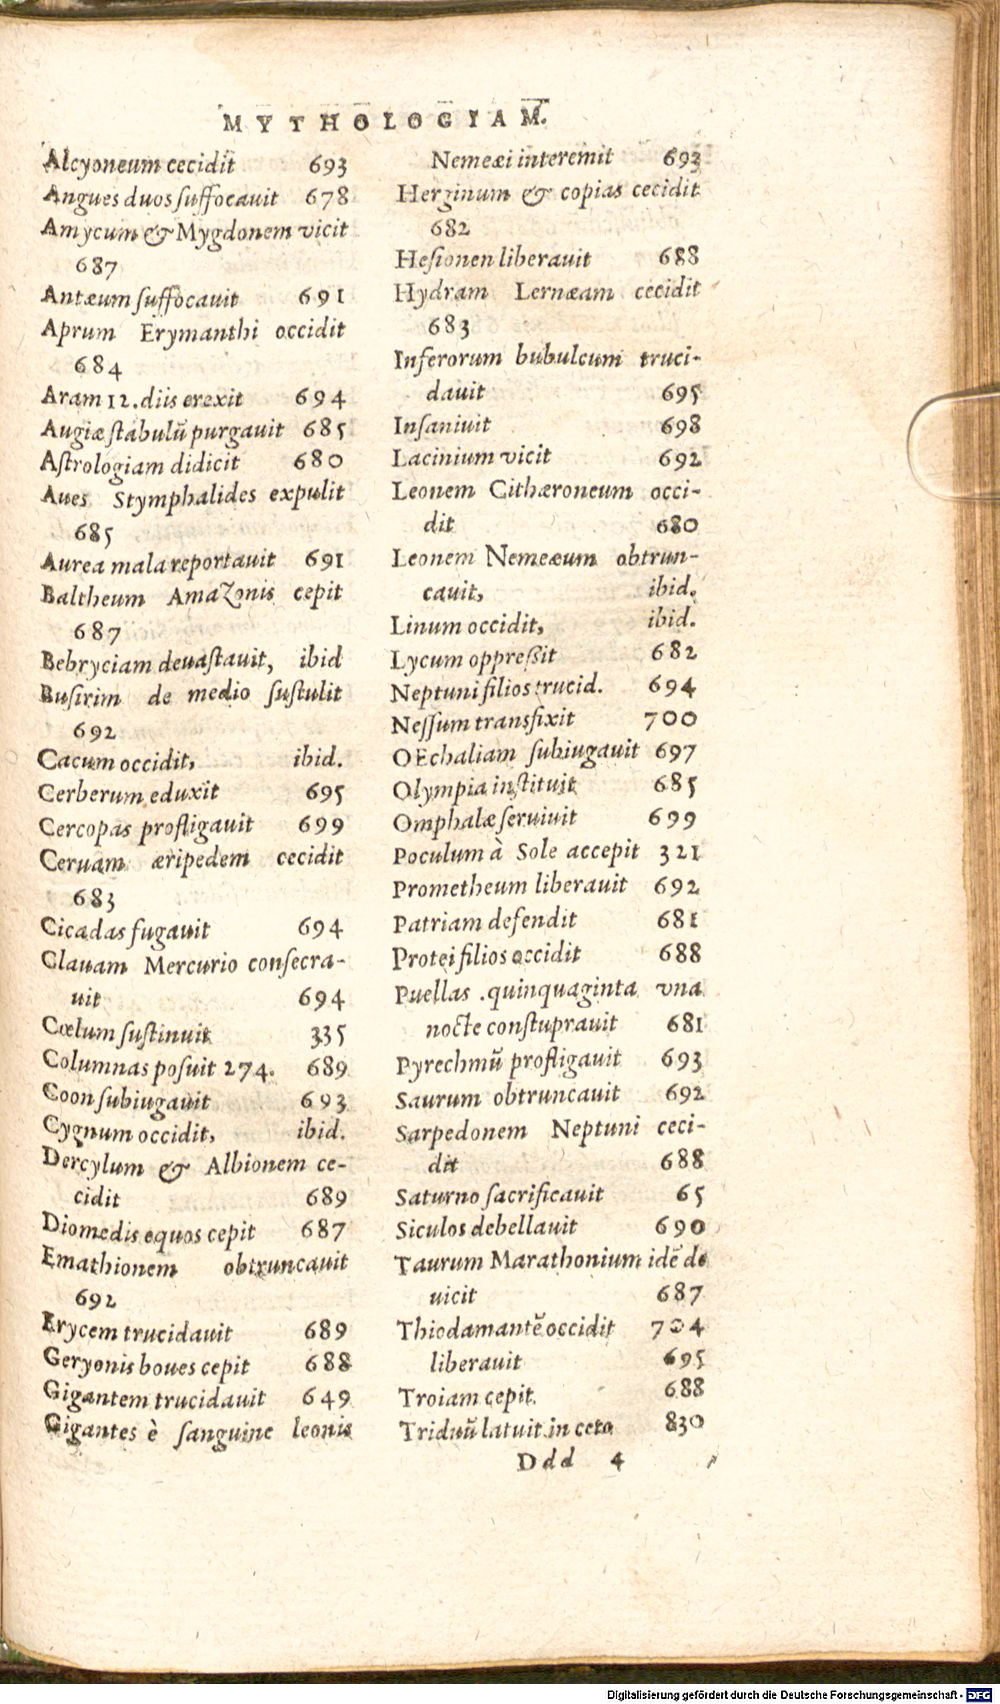 MYTHOLOGIAM.
Alcyoneum cecidit 693
Angues duos ſuffocauit 678
Amycum & Mygdonem vicit
687
Antæum ſuffocauit 691
Aprum Erymanthi occidit
684
Aram 12. diis erexit 694
Augiæ ſtabulũ purgauit 685
Aſtrologiam didicit 680
Aues Stymphalides expulit
685
Aurea mala reportauit 691
Baltheum Amazonis cepit
687
Bebryciam deuaſtauit, ibid
Buſirim de medio ſuſtulit
692
Cacum occidit, ibid.
Cerberum eduxit 695
Cercopas profligauit 699
Ceruam æripedem cecidit
683
Cicadas fugauit 694
Clauam Mercurio conſecra-
uit 694
Cœlum ſuſtinuit 335
Columnas poſuit 274. 689
Coon ſubiugauit 693
Cygnum occidit, ibid.
Dercylum & Albionem ce-
cidit 689
Diomedis equos cepit 687
Emathionem obtruncauit
692
Erycem trucidauit 689
Geryonis boues cepit 688
Gigantem trucidauit 649
Gigantes è ſanguine leonis
Nemeæi interemit 693
Herginum & copias cecidit
682
Heſionen liberauit 688
Hydram Lernæam cecidit
683
Inferorum bubulcum truci-
dauit 695
Inſaniuit 698
Lacinium vicit 692
Leonem Cithæroneum occi-
dit 680
Leonem Nemeæum obtrun-
cauit, ibid.
Linum occidit, ibid.
Lycum oppreßit 682
Neptuni filios trucid. 694
Neſſum transfixit 700
OEchaliam ſubiugauit 697
Olympia inſtituit 685
Omphalæ ſeruiuit 699
Poculum à Sole accepit 321
Prometheum liberauit 692
Patriam defendit 681
Protei filios occidit 688
Puellas .quinquaginta vna
nocte conſtuprauit 681
Pyrechmũ profligauit 693
Saurum obtruncauit 692
Sarpedonem Neptuni ceci-
dit 688
Saturno ſacrificauit 65
Siculos debellauit 690
Taurum Marathonium idẽ de
uicit 687
Thiodamantẽ occidit 704
liberauit 695
Troiam cepit. 688
Triduũ latuit in ceto 830
Ddd 4
Digitalisierung gefördert durch die Deutsche Forschungsgemeinschaft - DFG